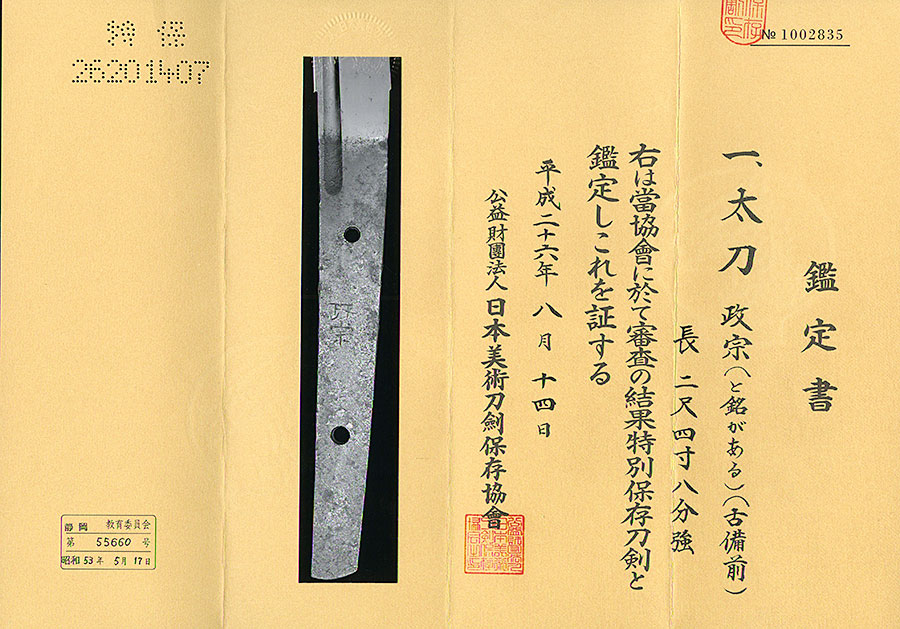 № 1002835
鑑定書
一、太刀 政宗(と銘がある)(古備前)
長 二尺四寸八分強
右は當協會に於て審査の結果特別保存刀剣と
鑑定しこれを証する
平成二十六年 八月 十四日
公益財團法人 日本美術刀劍保存協會
政宗
特保
26201407
静岡 教育委員会
第 55660 号
昭和 53年 5月 17日